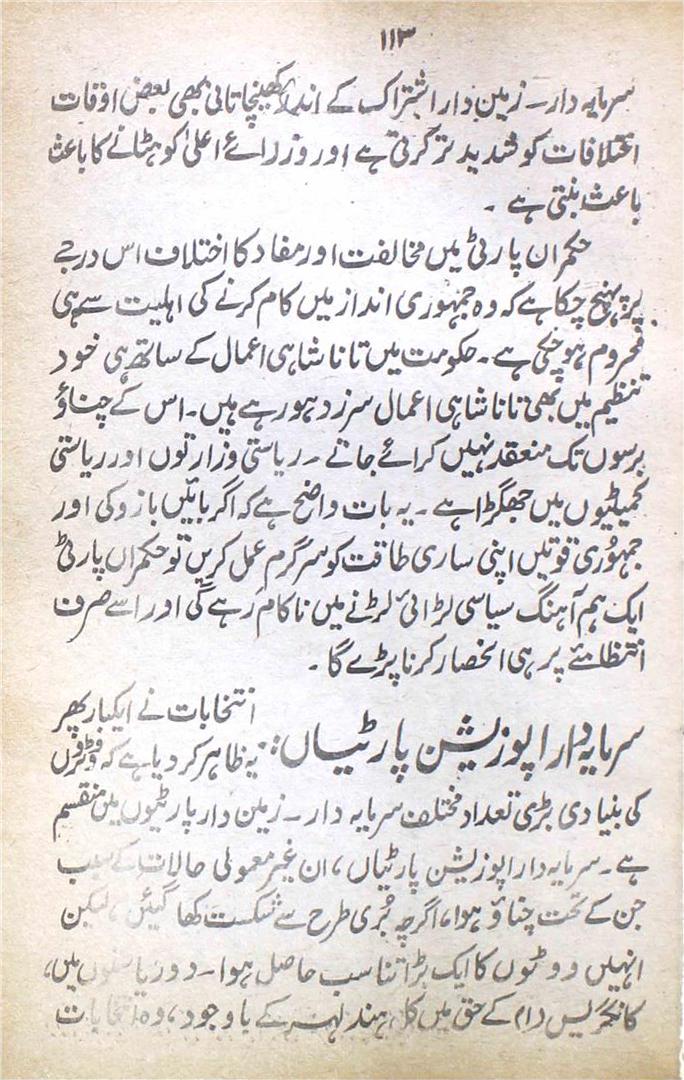 ۱۱۳
سرمایہ دار۔ زمین دار اشتراک کے اندر کھینچا تانی بھی بعض اوقات
اختلافات کو شدید تر کرتی ہے اور وزرائے اعلیٰ کو ہٹانے کا باعث
باعث بنتی ہے ۔
حکمراں پارٹی میں مخالفت اور مفاد کا اختلاف اس درجے
پر پہنچ چکا ہے کہ وہ جمہوری انداز میں کام کرنے کی اہلیت سے ہی
محروم ہو چکی ہے۔ حکومت میں تانا شاہی اعمال کے ساتھ ہی خود
تنظیم میں بھی تانا شاہی اعمال سرزد ہو رہے ہیں۔ اس کے چناؤ
برسوں تک منعقد نہیں کرائے جاتے ۔ ریاستی وزارتوں اور ریاستی
کمیٹیوں میں جھگڑا ہے ۔ یہ بات واضح ہے کہ اگر بائیں بازو کی اور
جمہوری قوتیں اپنی ساری طاقت کو سرگرم عمل کریں تو حکمراں پارٹی
ایک ہم آہنگ سیاسی لڑائی لڑنے میں ناکام رہے گی اور اسے صرف
انتظامئے پر ہی انحصار کرنا پڑے گا ۔
سرمایہ دار اپوزیشن پارٹیاں: انتخابات نے ایکبار پھر
یہ ظاہر کر دیا ہے کہ ووٹروں
کی بنیادی بڑی تعداد مختلف سرمایہ دار۔ زمین دار پارٹیوں میں منقسم
ہے ۔ سرمایہ دار اپوزیشن پارٹیاں ، ان غیر معمولی حالات کے سبب
جن کے تحت چناؤ ہوا، اگرچہ بُری طرح سے شکست کھا گئیں ، لیکن
انہیں ووٹوں کا ایک بڑا تناسب حاصل ہوا۔ دو ریاستوں میں،
کانگریس کے حق میں کل ہند لہر کے باوجود ، وہ انتخابات